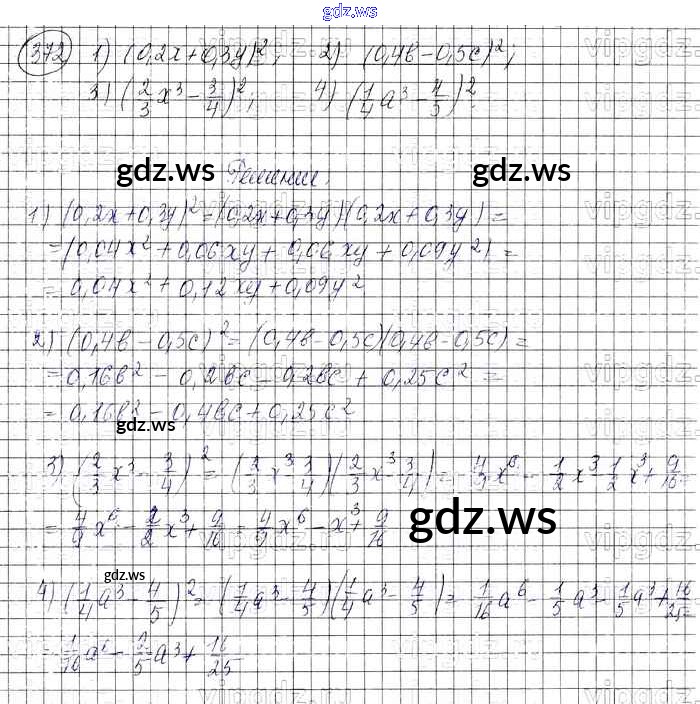 gdz.ws
372 1) (0,2x+0,3y)²; 2) (0,4b-0,5c)²;
3) (2/3 x³ - 3/4)²; 4) (1/4 a³ - 4/5)²
gdz.ws gdz.ws
Решение.
1) (0,2x+0,3y)² = (0,2x+0,3y)(0,2x+0,3y) =
= (0,04x² + 0,06xy + 0,06xy + 0,09y²) =
= 0,04x² + 0,12xy + 0,09y²
2) (0,4b - 0,5c)² = (0,4b - 0,5c)(0,4b - 0,5c) =
= 0,16b² - 0,2bc - 0,2bc + 0,25c² =
= 0,16b² - 0,4bc + 0,25c²
gdz.ws
3) (2/3 x³ - 3/4)² = (2/3 x³ - 3/4)(2/3 x³ - 3/4) = 4/9 x⁶ - 1/2 x³ - 1/2 x³ + 9/16 =
= 4/9 x⁶ - 2/2 x³ + 9/16 = 4/9 x⁶ - x³ + 9/16
gdz.ws
gdz.ws
4) (1/4 a³ - 4/5)² = (1/4 a³ - 4/5)(1/4 a³ - 4/5) = 1/16 a⁶ - 1/5 a³ - 1/5 a³ + 16/25 =
= 1/16 a⁶ - 2/5 a³ + 16/25
gdz.ws